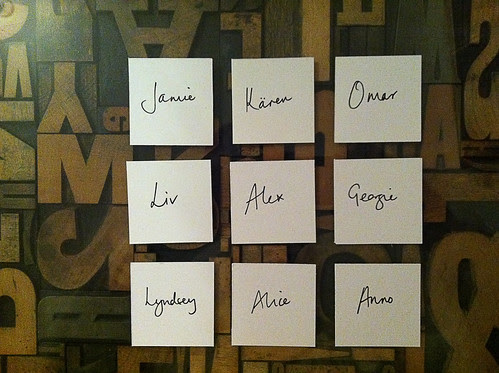 Jamie
Kären
Omar
Liv
Alex
Georgie
Lyndsey
Alice
Anno